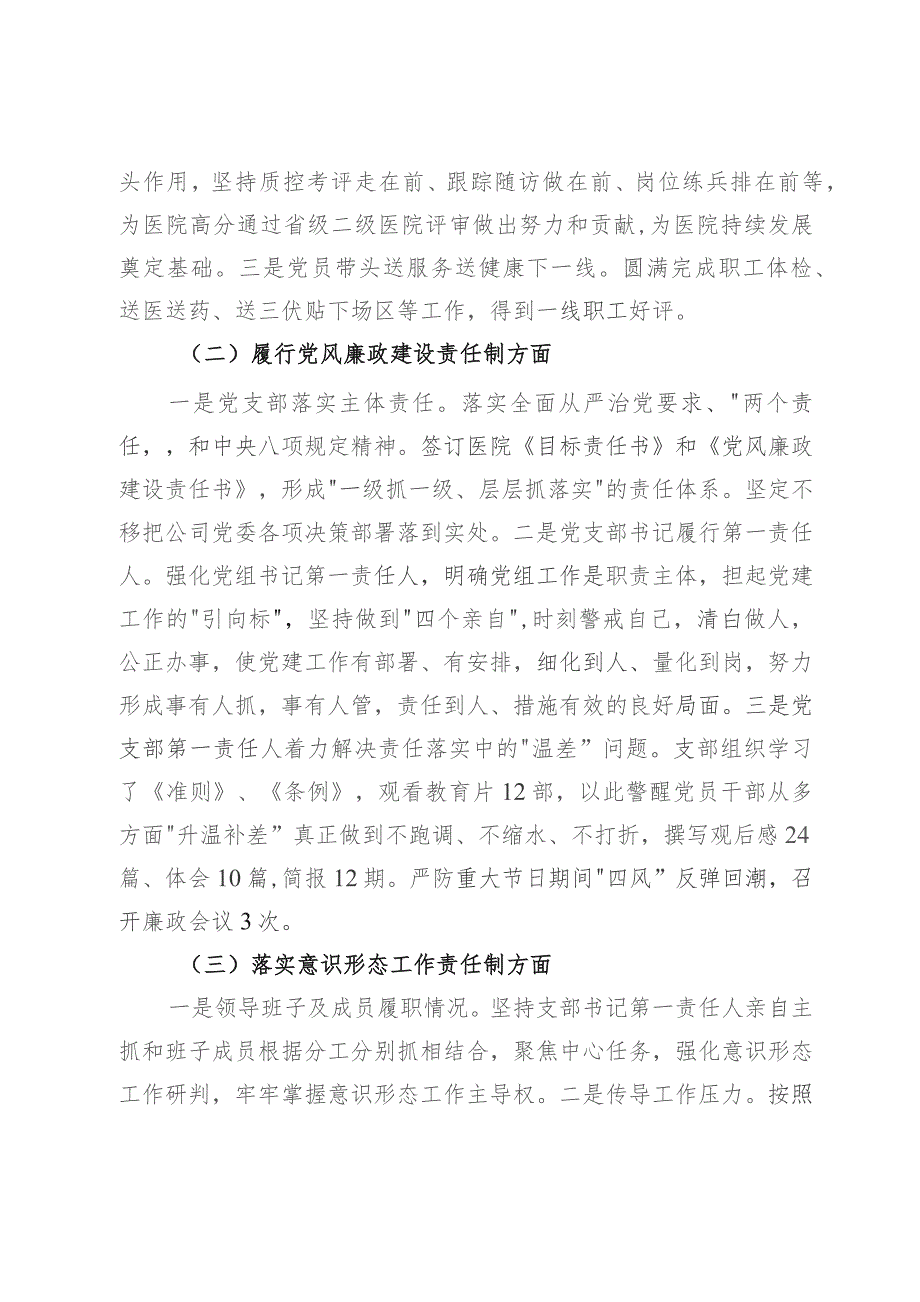 头作用，坚持质控考评走在前、跟踪随访做在前、岗位练兵排在前等，
为医院高分通过省级二级医院评审做出努力和贡献,为医院持续发展
奠定基础。三是党员带头送服务送健康下一线。圆满完成职工体检、
送医送药、送三伏贴下场区等工作，得到一线职工好评。
（二）履行党风廉政建设责任制方面
一是党支部落实主体责任。落实全面从严治党要求、"两个责
任，，和中央八项规定精神。签订医院《目标责任书》和《党风廉政
建设责任书》，形成"一级抓一级、层层抓落实"的责任体系。坚定不
移把公司党委各项决策部署落到实处。二是党支部书记履行第一责任
人。强化党组书记第一责任人，明确党组工作是职责主体，担起党建
工作的"引向标"，坚持做到"四个亲自",时刻警戒自己，清白做人，
公正办事，使党建工作有部署、有安排，细化到人、量化到岗，努力
形成事有人抓，事有人管，责任到人、措施有效的良好局面。三是党
支部第一责任人着力解决责任落实中的"温差”问题。支部组织学习
了《准则》、《条例》，观看教育片12部，以此警醒党员干部从多
方面"升温补差”真正做到不跑调、不缩水、不打折，撰写观后感24
篇、体会10篇,简报12期。严防重大节日期间"四风”反弹回潮，召
开廉政会议3次。
（三）落实意识形态工作责任制方面
一是领导班子及成员履职情况。坚持支部书记第一责任人亲自主
抓和班子成员根据分工分别抓相结合，聚焦中心任务，强化意识形态
工作研判，牢牢掌握意识形态工作主导权。二是传导工作压力。按照